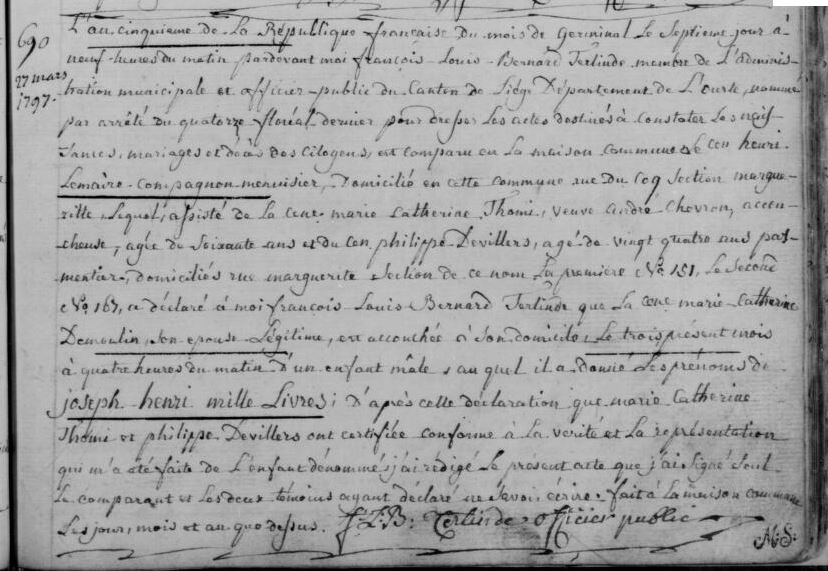 L'an cinquieme de La République française Du mois de Germinal Le Septieme jour à
690
neuf heures du matin pardevant moi françois Louis Bernard Terlinde membre de L'adminis-
27 mars
1797.
tration municipale et officier public du Canton de Liége Département de L'ourte, nommé
par arrêté du quatorze floréal dernier pour dresser Les actes destinés à constater Les nais-
sances, mariages et décès des Citoyens, est comparu en La maison commune Le cen henri
Lemaire compagnon menuisier, Domicilié en cette commune rue du Coq Section margue-
ritte, Lequel, assisté de La cene marie Catherine Thomi, veuve andré Chevron, accou-
cheuse, agée de Soixante ans et du cen philippe Devillers, agé de vingt quatre ans par-
mentier, domiciliés rue marguerite Section de ce nom La premiere No 151, Le Second
No 167, a déclaré à moi françois Louis Bernard Terlinde que La cene marie Catherine
Demoulin, Son epouse Légitime, est accouchée à Son domicile, Le trois présent mois
à quatre heures du matin D'un enfant mâle, auquel il a donné Les prénoms de
joseph henri mille Livres; D'après cette déclaration que marie Catherine
Thomi et philippe Devillers ont certifiée conforme à La verité et La représentation
qui m'a été faite de L'enfant dénommé, j'ai rédigé Le présent acte que j'ai signé seul
Le comparant et Les deux témoins ayant déclaré ne Savoir écrire. fait à La maison commune
Les jour, mois et an que dessus. f: L: B: Terlinde officier public
M:S: